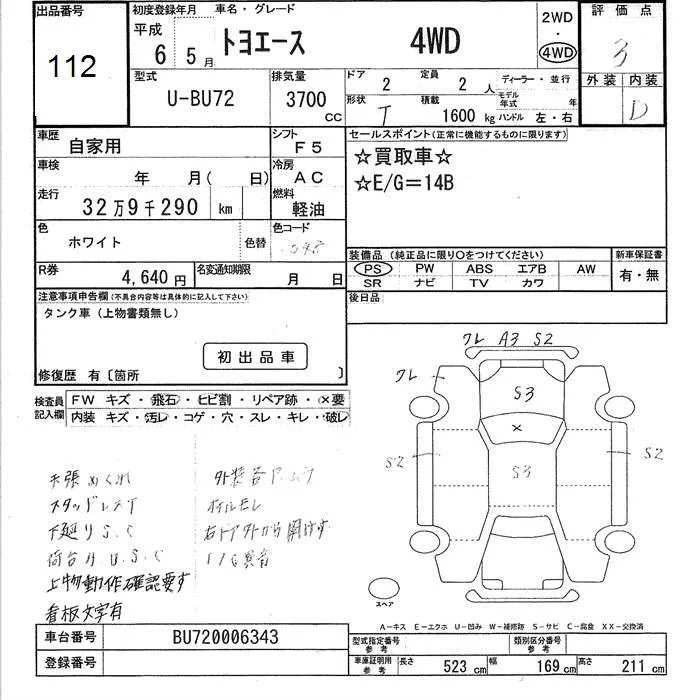 出品番号 初度登録年月 車名・グレード 評価点
112 平成 6年 5月 トヨエース 4WD 2WD・4WD 3
型式 排気量 ドア 定員 ディーラー・並行 外装 内装
U-BU72 3700cc 2 2人 D
形状 積載 モデル年式 年
T 1600kg ハンドル 左・右
車歴 自家用 シフト F5
車検 年 月(日) 冷房 AC
走行 32万9千290 km 燃料 軽油
色 ホワイト 色替 色コード
R券 4,640円 名変通知期限 月 日
セールスポイント(正常に機能するものに限ります)
☆買取車☆
☆E/G=14B
装備品(純正品に限り○をつけてください) 新車保証書
PS PW ABS エアB AW 有・無
SR ナビ TV カワ
後日品
注意事項申告欄(不具合内容等は具体的に記入して下さい)
タンク車(上物書類無し)
初出品車
修復歴 有〔箇所 〕
検査員記入欄 FW キズ・飛石・ヒビ割・リペア跡・×要
内装 キズ・汚レ・コゲ・穴・スレ・キレ・破レ
ワレ A3 S2
ワレ
S3
×
S2 S3 S2
天張めくれ
スタッドレスT
下廻りS.C
荷台
上物動作確認要す
看板文字有
外装各
オイルモレ
右ドア外から開けず
異音
スペア
A-キズ E-エクボ U-凹み W-補修跡 S-サビ C-腐食 XX-交換済
車台番号 BU720006343
登録番号
型式指定番号 参考 類別区分番号 参考
車庫証明用 参考 長さ 523cm 幅 169cm 高さ 211cm